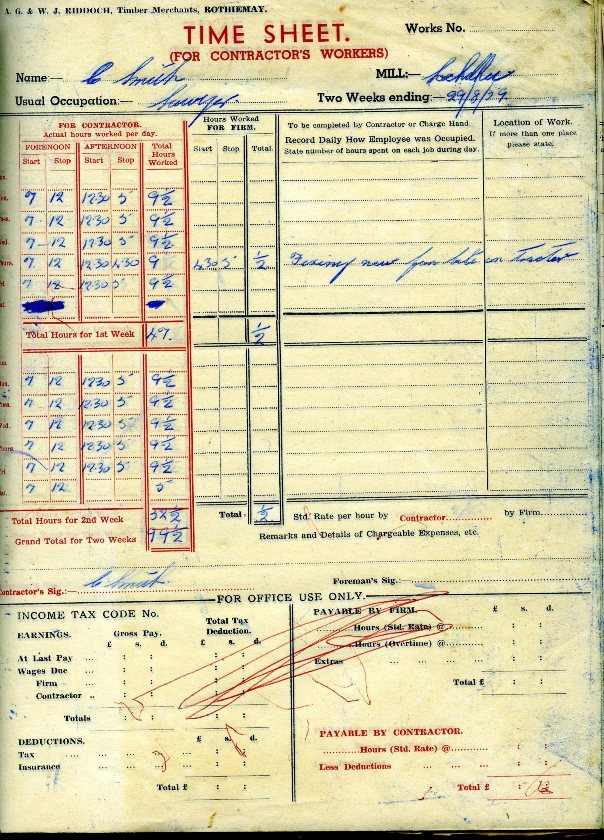 A. G. & W. J. RIDDOCH, Timber Merchants, ROTHIEMAY.
TIME SHEET.
(FOR CONTRACTOR'S WORKERS)
Works No.
Name:— C Smith
MILL:—
Usual Occupation:— Sawyer
Two Weeks ending:— 29/8/59.
FOR CONTRACTOR.
Actual hours worked per day.
FORENOON AFTERNOON Total Hours Worked
Start Stop Start Stop
Hours Worked FOR FIRM.
Start Stop Total.
To be completed by Contractor or Charge Hand
Record Daily How Employee was Occupied.
State number of hours spent on each job during day.
Location of Work.
If more than one place please state.
7 12 1230 5 9½
7 12 1230 5 9½
7 12 1230 5 9½
7 12 1230 430 9 430 5 ½ new fan on
7 12 1230 5 9½
Total Hours for 1st Week 47. ½
7 12 1230 5 9½
7 12 1230 5 9½
7 12 1230 5 9½
7 12 1230 5 9½
7 12 1230 5 9½
7 12 5
Total Hours for 2nd Week 52½
Total ½
Std. Rate per hour by Contractor by Firm
Grand Total for Two Weeks 99½
Remarks and Details of Chargeable Expenses, etc.
Contractor's Sig.:— C Smith
Foreman's Sig.:—
FOR OFFICE USE ONLY.
INCOME TAX CODE No.
Total Tax Deduction.
EARNINGS. Gross Pay.
£ s. d. £ s. d.
At Last Pay
Wages Due
Firm
Contractor
Totals
DEDUCTIONS. £ s. d.
Tax
Insurance
Total £
PAYABLE BY FIRM. £ s. d.
Hours (Std. Rate) @
Hours (Overtime) @
Extras
Total £
PAYABLE BY CONTRACTOR.
Hours (Std. Rate) @
Less Deductions
Total £